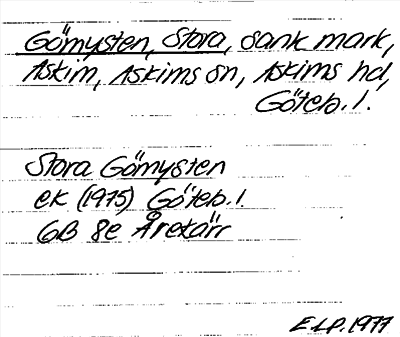 Gömysten, Stora, sank mark,
Askim, Askims sn, Askims hd,
Göteb. l.
Stora Gömysten
ek (1975) Göteb. l.
6B 8e Åretärr
E L P. 1977